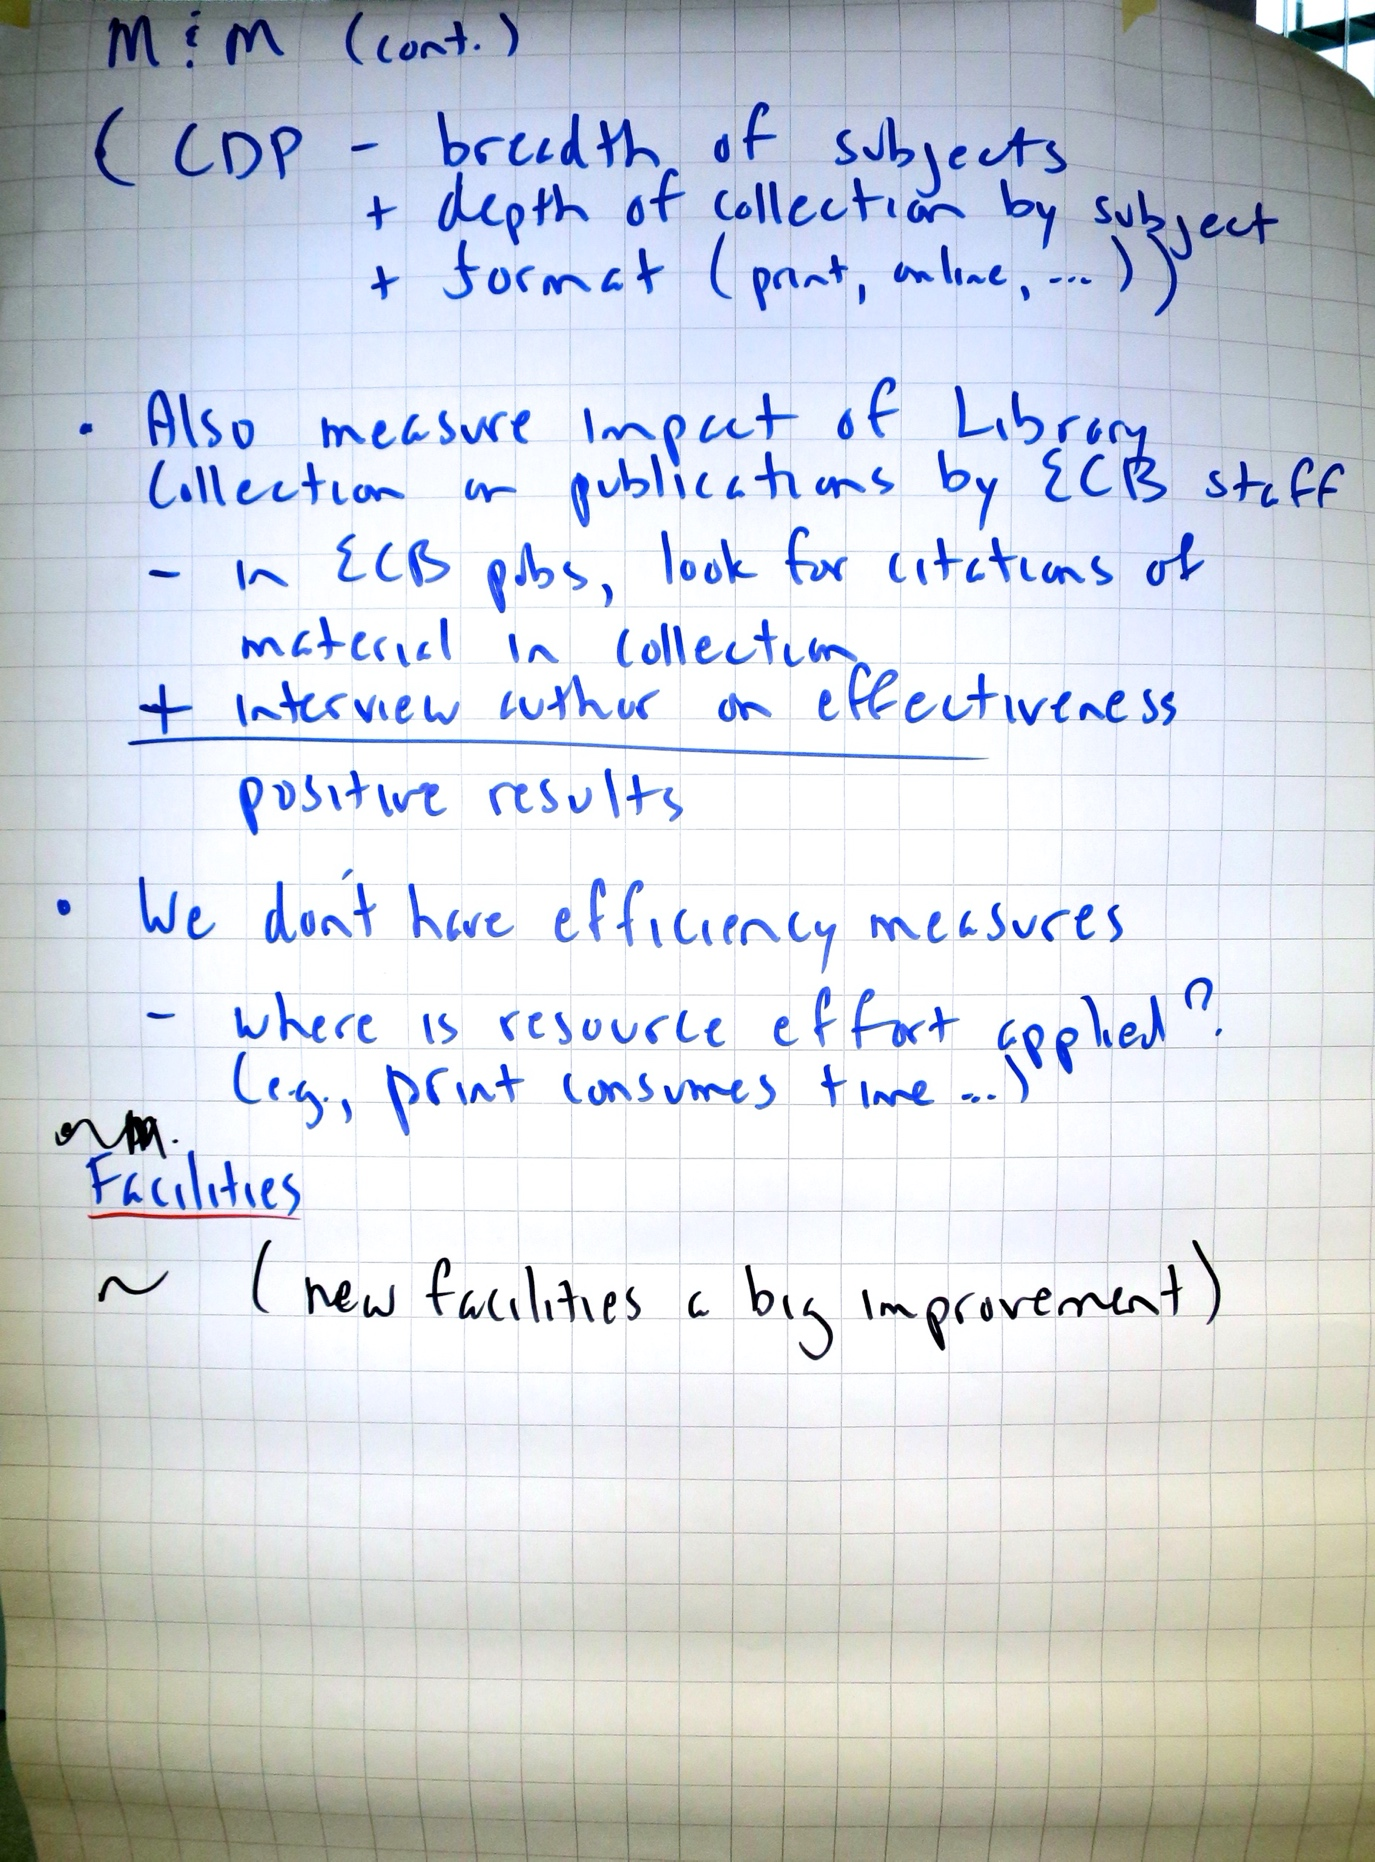 M & M (cont.)
( CDP - breadth of subjects
+ depth of collection by subject
+ format (print, online, ...))
• Also measure impact of Library
Collection on publications by ECB staff
- in ECB pubs, look for citations of
material in collection
+ interview author on effectiveness
positive results
• We don't have efficiency measures
- where is resource effort applied?
(e.g., print consumes time ...)
Facilities
~ (new facilities a big improvement)